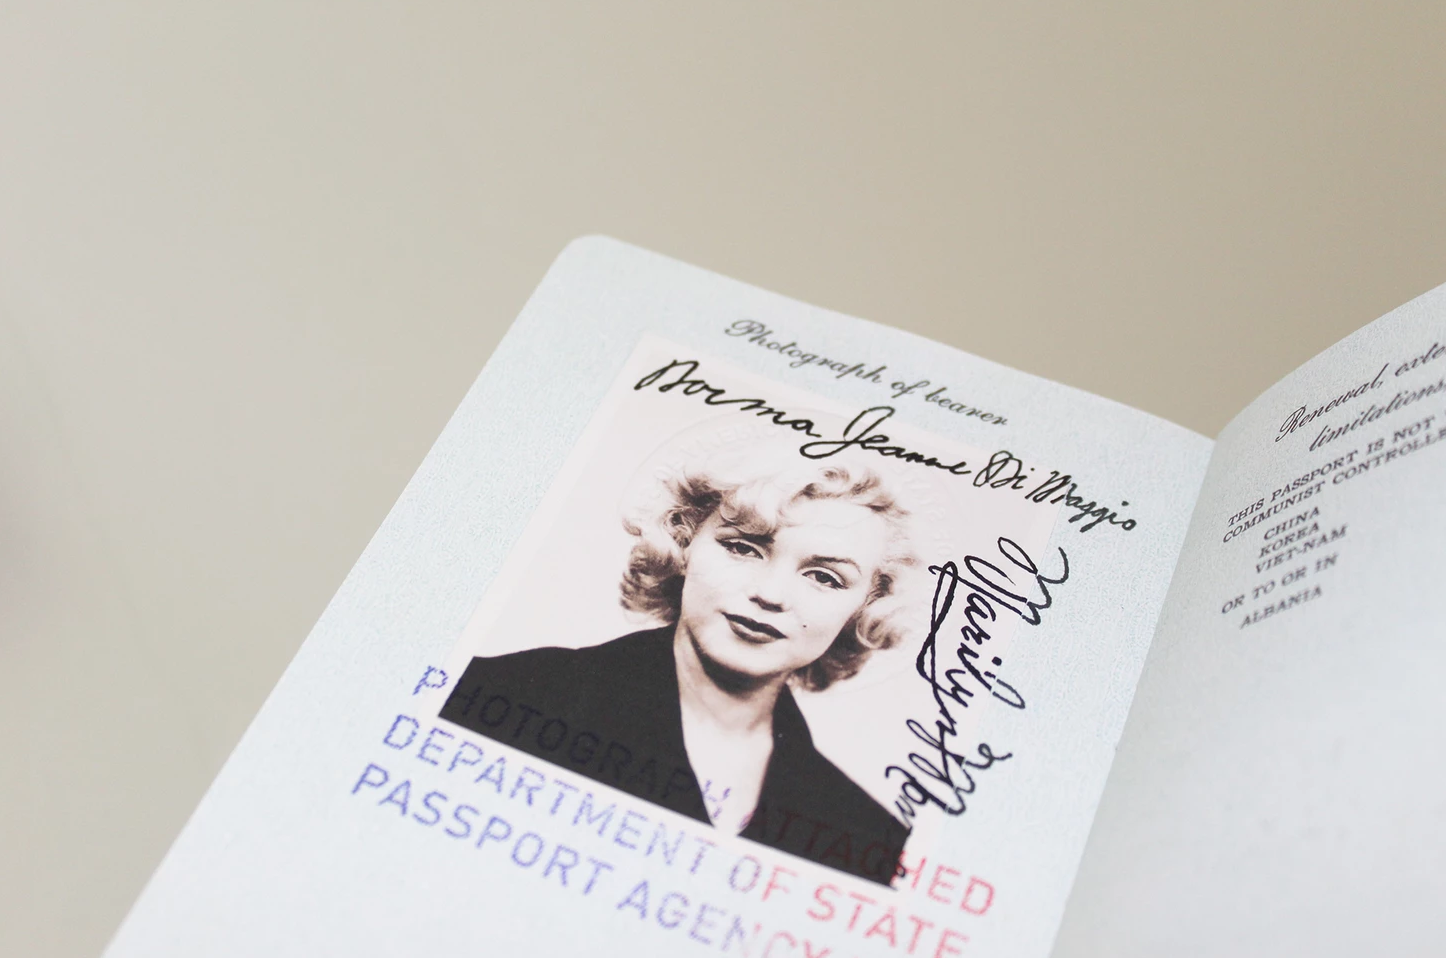 Photograph of bearer
Norma Jeanne Di Maggio
Marilyn Mon
PHOTOGRAPH ATTACHED
DEPARTMENT OF STATE
PASSPORT AGENCY
Renewal, exte
limitations
THIS PASSPORT IS NOT
COMMUNIST CONTROLLE
CHINA
KOREA
VIET-NAM
OR TO OR IN
ALBANIA